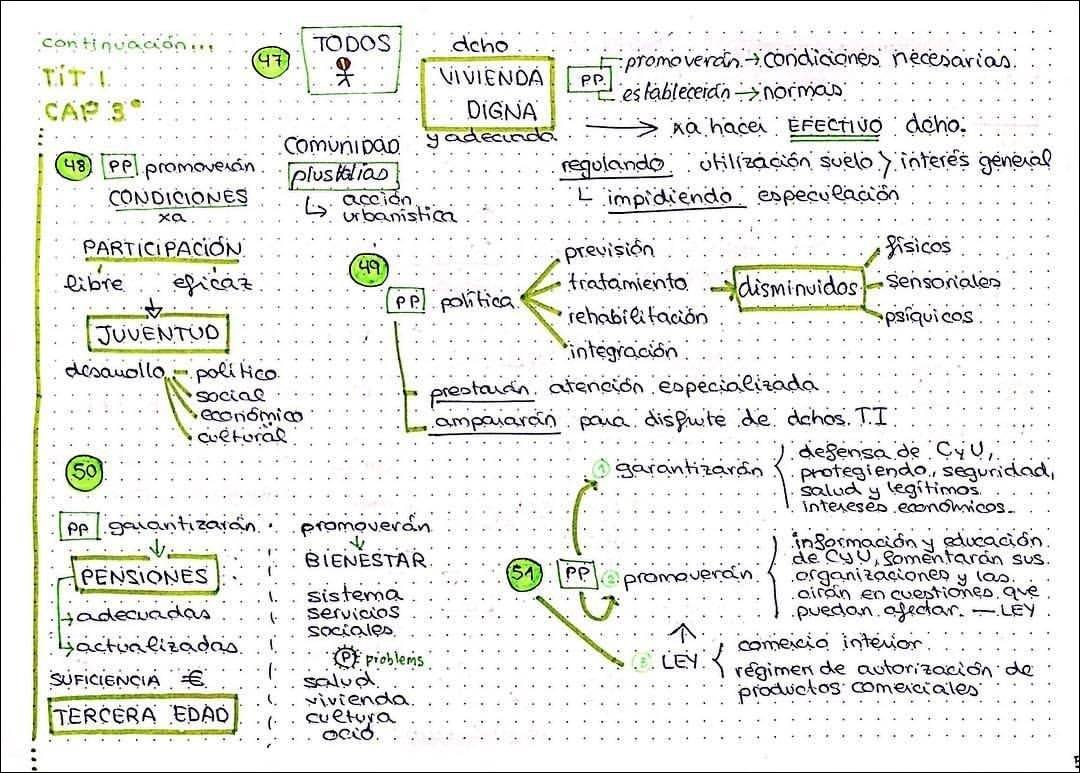 continuación...
TÍT I.
CAP 3°
47
TODOS
dcho
VIVIENDA
DIGNA
y adecuada
PP
promoverán → condiciones necesarias.
establecerán → normas
→ xa hacer EFECTIVO dcho.
regulando utilización suelo > interés general
impidiendo especulación
COMUNIDAD
plusvalías
↳ acción
urbanística
48 PP promoverán
CONDICIONES
xa
PARTICIPACIÓN
libre eficaz
JUVENTUD
desarrollo
político
social
económico
cultural
49
PP política
previsión
tratamiento
rehabilitación
integración
disminuidos
físicos
sensoriales
psíquicos
prestarán atención especializada
ampararán para disfrute de dchos. T.I
50
PP garantizarán
PENSIONES
adecuadas
actualizadas
SUFICIENCIA €
TERCERA EDAD
promoverán
BIENESTAR
sistema
servicios
sociales
P problems
salud
vivienda
cultura
ocio
51 PP
1 garantizarán
defensa de CyU,
protegiendo, seguridad,
salud y legítimos
intereses económicos.
2 promoverán
información y educación
de CyU, fomentarán sus
organizaciones y las
oirán en cuestiones que
puedan afectar. — LEY
3 LEY
comercio interior
régimen de autorización de
productos comerciales